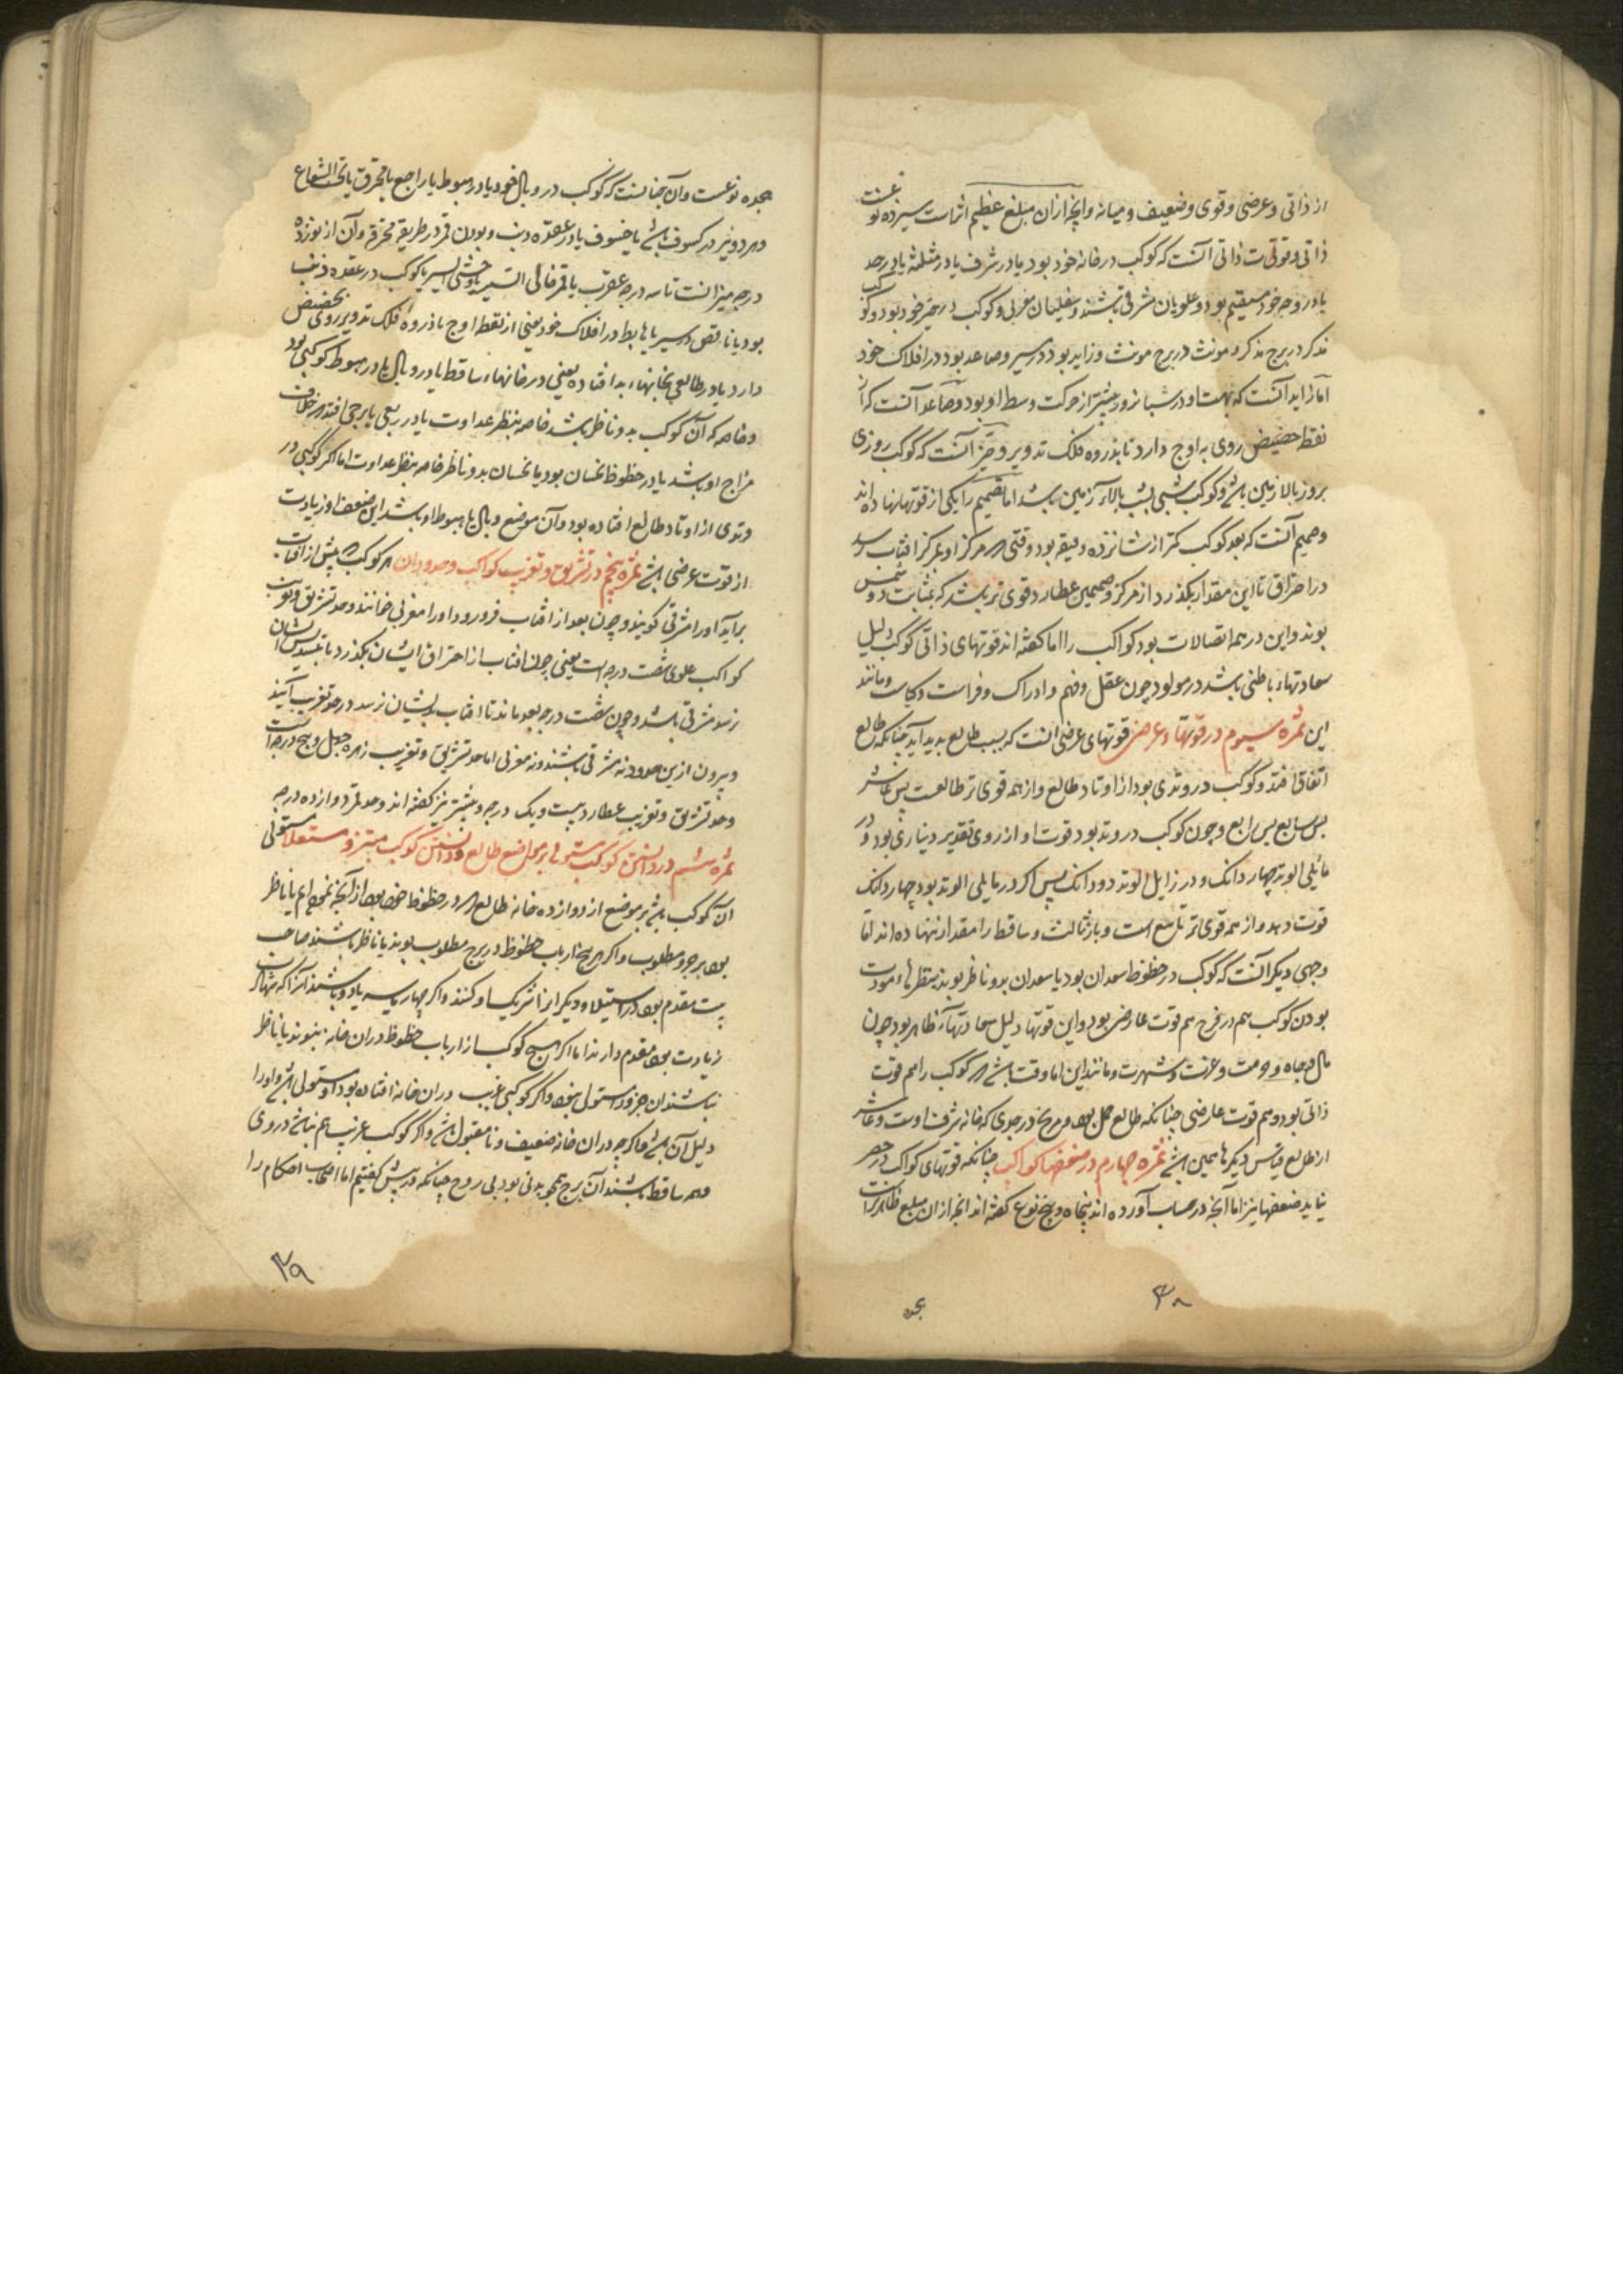 از ذاتی و عرضی و قوی و ضعیف و میانه و آنچه ازان مبلغ عظیم اثرات سیزده نوعست
ذاتی وقوت ذاتی آنست که کوکب در خانه خود بود یا در شرف یا در مثلثه یا در حد
یا در وجه خود مستقیم بود و علویان مشرقی باشند و سفلیان مغربی و کوکب در حیز خود بود و کوکب
مذکر در برج مذکر و مونث در برج مونث و زاید بود در سیر و صاعد بود در افلاک خود
اما زاید آنست که بهت او در شبانروز بیشتر از حرکت وسط او بود و صاعد آنست که از
نقطه حضیض روی به اوج دارد تا بذروه فلک تدویر و حیز آنست که کوکب روزی
بروز بالا زمین باشد و کوکب شبی بشب بالاء زمین باشد اما تصمیم را یکی از قوتها نهاده اند
وصمیم آنست که بعد کوکب کمتر از شانزده دقیقه بود وقتی مرکز او بمرکز آفتاب رسد
در احتراق تا این مقدار بگذرد از مرکز وصمیمین عطارد قوی تر باشد که بمثابت دو شمس
بوند و این در همه اتصالات بود کواکب را اما گفته اند قوتهای ذاتی کوکب دلیل
سعادتهاء باطنی باشد در مولود چون عقل و فهم و ادراک و فراست و کیاست و مانند
این ثمره سیوم در قوتهاء عرضی قوتهای عرضی آنست که بسبب طالع بدید آید چنانکه طالع
اتفاق افتد و کوکب در وتدی بود از اوتاد طالع و از همه قوی تر طالعست پس عاشر
پس سابع پس رابع و چون کوکب در وتد بود قوت او از روی تقدیر دیناری بود و در
مائلی الوتد چهار دانک و در زایل الوتد دو دانک پس اگر در مایلی الوتد بود چهار دانک
قوت دهد و از همه قوی تر تاسع است و باز ثالث و ساقط را مقدار ننهاده اند اما
وجهی دیگر آنست که کوکب در حظوظ سعدان بود یا سعدان بدو ناظر بوند بنظرهاء مودت
بودن کوکب هم در فرح هم قوت عارضی بود و این قوتها دلیل سعادتهاء ظاهر بود چون
مال و جاه و حرمت و عزت و شهرت و مانند این اما وقت باشد هر کوکب را هم قوت
ذاتی بود و هم قوت عارضی چنانکه طالع حمل بود و مریخ در جدی که خانه شرف اوست و عاشر
از طالع قیاس دیگرها همین باشد ثمره چهارم در ضعفها کواکب چنانکه قوتهای کواکب در حصر
نیاید ضعفها نیز اما آنچه در حساب آورده اند پنجاه و پنج نوع گفته اند آنچه ازان مبلغ ظاهرتراست
۳۸
هجده
هجده نوعست وآن چنانست که کوکب در وبال خود یا در هبوط یا راجع یا محترق یا تحت الشعاع
وهر دو نیر در کسوف باشد یا خسوف یا در عقده ذنب و بودن قمر در طریقه محترقه وآن از نوزده
درجه میزانست تا سه درجه عقرب یا قمر خالی السیر یا وحشی السیر یا کوکب در عقده ذنب
بود یا ناقص در سیر یا هابط در افلاک خود یعنی از نقطه اوج یا ذروه فلک تدویر روی بحضیض
دارد یا در طالعی بخانهاء بد افتاده یعنی در خانهاء ساقط یا در وبال یا در هبوط کوکبی بود
وخاصه که آن کوکب بدو ناظر باشد خاصه بنظر عداوت یا در ربعی یا برجی افتد بر خلاف
مزاج او باشد یا در حظوظ نحسان بود یا نحسان بدو ناظر خاصه بنظر عداوت اما اگر کوکبی در
وتدی از اوتاد طالع افتاده بود وآن موضع وبال یا هبوط او باشد این ضعف او زیادت
از قوت عرضی باشد ثمره پنجم در تشریق و تغریب کواکب و حدود ان هر کوکب که پیش از آفتاب
برآید او را مشرقی گویند و چون بعد از آفتاب فرو رود او را مغربی خوانند و حد تشریق و تغریب
کواکب علوی شصت درجه است یعنی چون آفتاب از احتراق ایشان بگذرد تا بتسدیس ایشان
رسد مشرقی باشد و چون شصت درجه بعد ماند تا آفتاب بدیشان نرسد در حد تغریب آیند
وبیرون ازین حدود نه مشرقی باشند و نه مغربی اما حد تشریق و تغریب زهره چهل و پنج درجه است
وحد تشریق و تغریب عطارد بیست و یک درجه و بیشتر نیز گفته اند و حد قمر دوازده درجه
ثمره ششم در دانستن کوکب مستولی بر مواضع طالع و دانستن کوکب مبتز و مستعلا مستولی
آن کوکب باشد بر موضع از دوازده خانه طالع که در حظوظ خود بود از آنچه نمودیم یا ناظر
بود برجزو مطلوب و اگر هر پنج ارباب حظوظ در برج مطلوب بوند یا ناظر باشند صاحب
بیت مقدم بود در استیلا و دیگرانرا شریک او کنند و اگر چهار یا سه یا دو باشند آنرا که شهادت
زیادت بود مقدم دارند اما اگر هیچ کوکب از ارباب حظوظ دران خانه نبوند یا ناظر
نباشند ان جزو را مستولی نبود و اگر کوکبی غریب دران خانه افتاده بود او مستولی باشد و او را
دلیل آن باشد و اگرچه دران خانه ضعیف و نامقبول باشد و اگر کوکب غریب هم نباشد در وی
وهمه ساقط باشند آن برج همچو بدنی بود بی روح چنانکه در پیش گفتیم اما اصحاب احکام را
۳۹